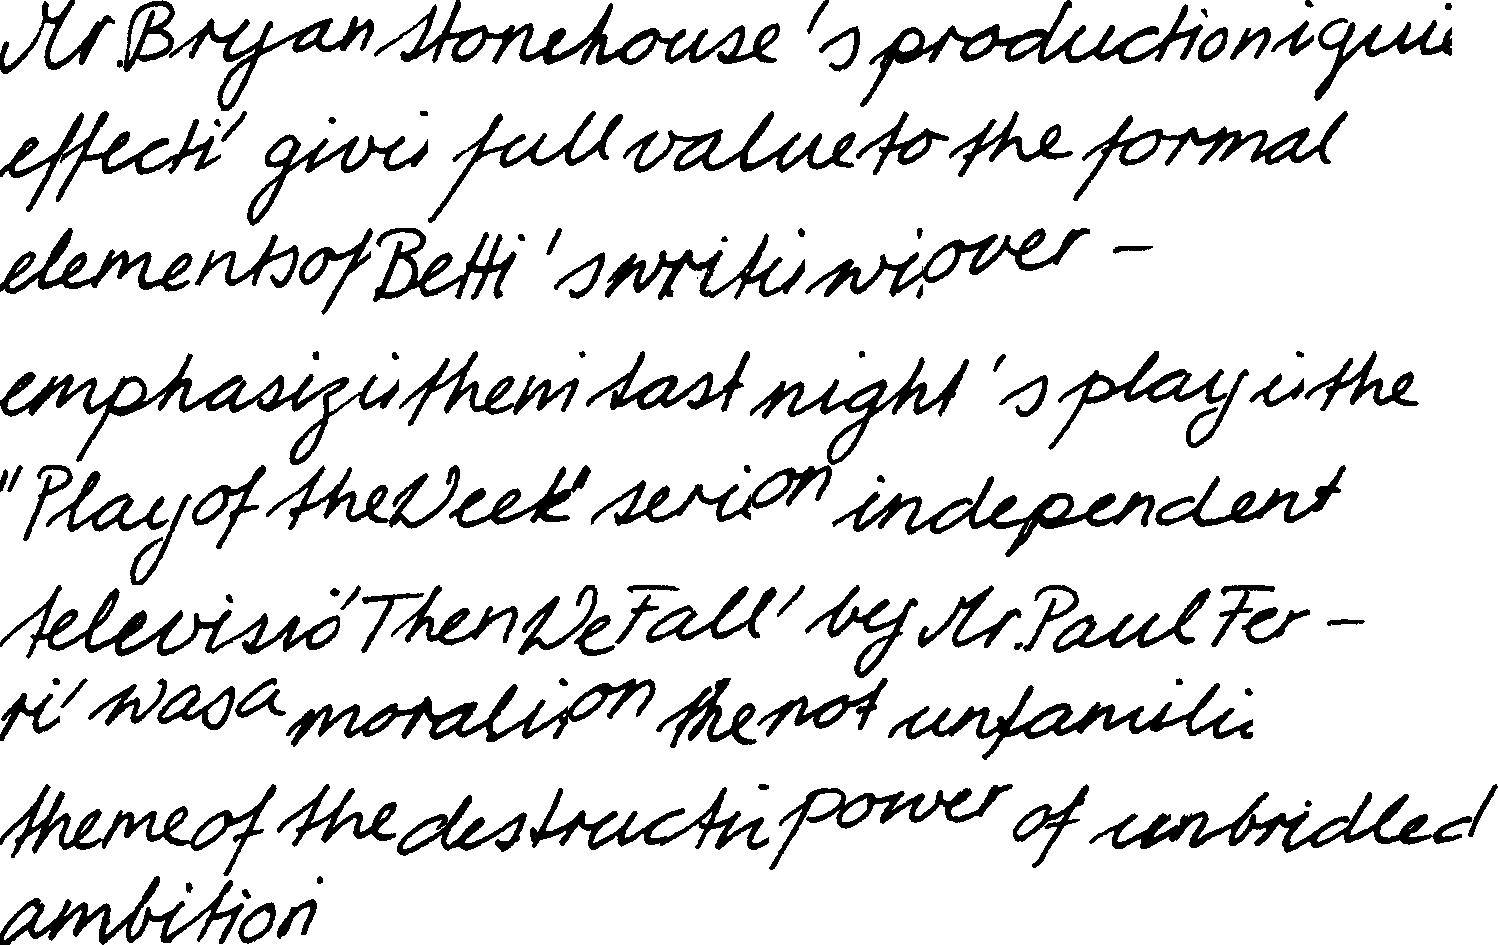 Mr. Bryan Stonehouse's production i quie
effecti' givis full value to the formal
elements of Betti's writis wi over-
emphasizis them last night's play is the
"Play of the Week" seri on independent
televisio' Then We Fall' by Mr. Paul Fer-
ri' was a morali on the not unfamili
theme of the destructi power of unbridled
ambition